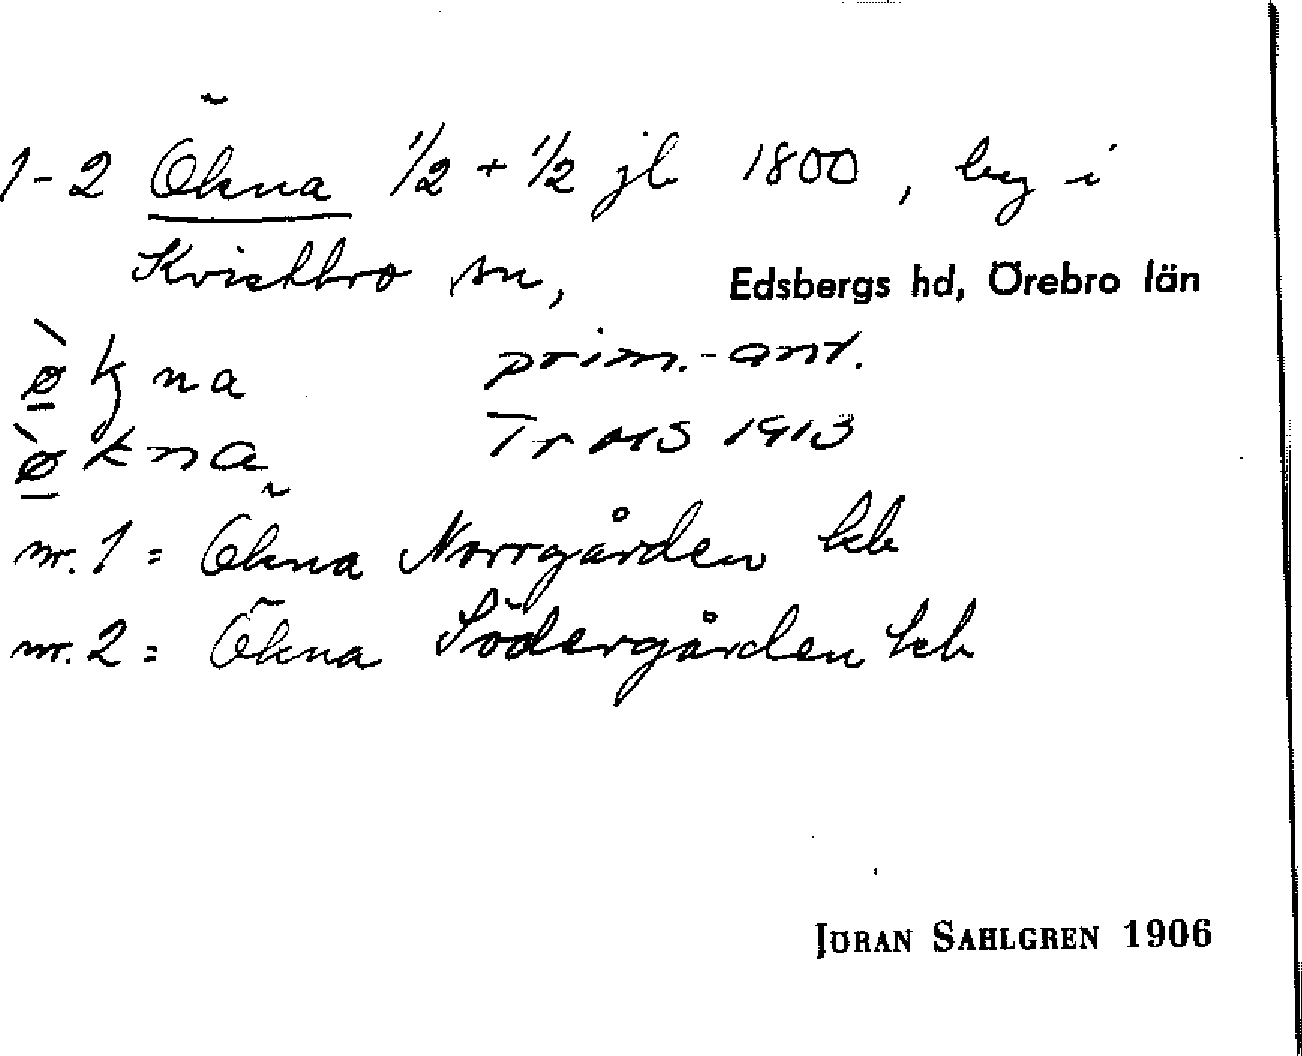 1-2 Ökna 1/2 + 1/2 jb 1800, by i
Kvistbro sn, Edsbergs hd, Örebro län
ø̀kna prim.-ant.
ø̀kna Tr OAS 1913
nr. 1 = Ökna Norrgården kb
nr. 2 = Ökna Södergården kb
JÖRAN SAHLGREN 1906